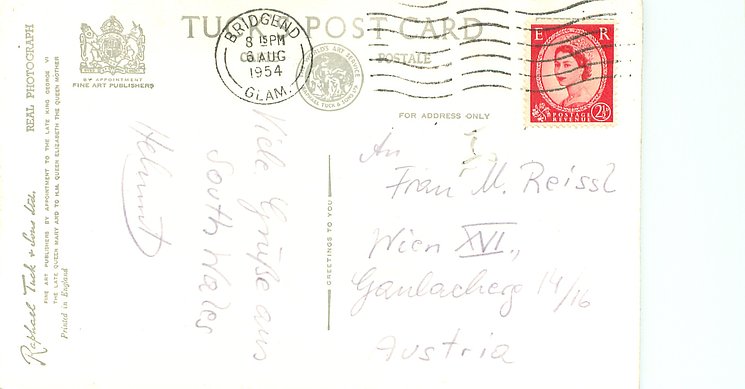 TUCK'S POST CARD
CARTE POSTALE
BRIDGEND
8 15 PM
6 AUG
1954
GLAM.
E R
POSTAGE
REVENUE
2½D
BY APPOINTMENT
FINE ART PUBLISHERS
REAL PHOTOGRAPH
Raphael Tuck & Sons Ltd.
FINE ART PUBLISHERS BY APPOINTMENT TO THE LATE KING GEORGE VI
THE LATE QUEEN MARY AND TO H.M. QUEEN ELIZABETH THE QUEEN MOTHER
Printed in England
Viele Grüße aus
South Wales
Helmut
GREETINGS TO YOU
FOR ADDRESS ONLY
An
Frau M. Reissl
Wien XVI.,
14/16
Austria